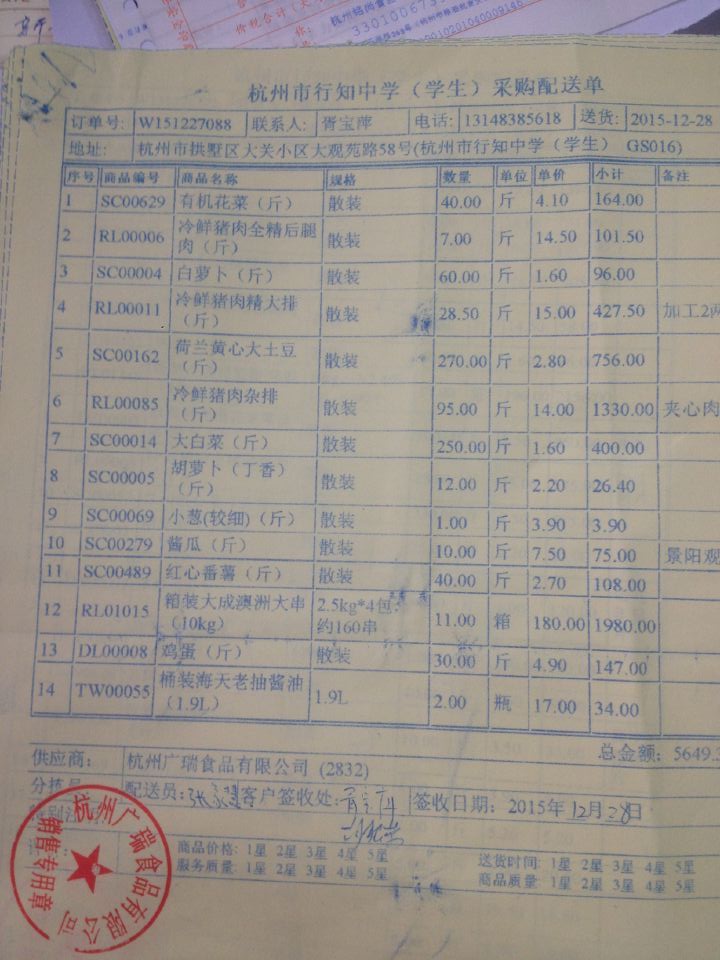 价税合计（大
33010067
2010201040009146
杭州市行知中学（学生）采购配送单
订单号: W151227088 联系人: 胥宝萍 电话: 13148385618 送货: 2015-12-28
地址: 杭州市拱墅区大关小区大观苑路58号(杭州市行知中学（学生） GS016)
序号 商品编号 商品名称 规格 数量 单位 单价 小计 备注
1 SC00629 有机花菜（斤） 散装 40.00 斤 4.10 164.00
2 RL00006 冷鲜猪肉全精后腿肉（斤） 散装 7.00 斤 14.50 101.50
3 SC00004 白萝卜（斤） 散装 60.00 斤 1.60 96.00
4 RL00011 冷鲜猪肉精大排（斤） 散装 28.50 斤 15.00 427.50 加工2两
5 SC00162 荷兰黄心大土豆（斤） 散装 270.00 斤 2.80 756.00
6 RL00085 冷鲜猪肉杂排（斤） 散装 95.00 斤 14.00 1330.00 夹心肉
7 SC00014 大白菜（斤） 散装 250.00 斤 1.60 400.00
8 SC00005 胡萝卜（丁香）（斤） 散装 12.00 斤 2.20 26.40
9 SC00069 小葱(较细)（斤） 散装 1.00 斤 3.90 3.90
10 SC00279 酱瓜（斤） 散装 10.00 斤 7.50 75.00 景阳观
11 SC00489 红心番薯（斤） 散装 40.00 斤 2.70 108.00
12 RL01015 箱装大成澳洲大串（10kg） 2.5kg*4包;约160串 11.00 箱 180.00 1980.00
13 DL00008 鸡蛋（斤） 散装 30.00 斤 4.90 147.00
14 TW00055 桶装海天老抽酱油（1.9L） 1.9L 2.00 瓶 17.00 34.00
总金额: 5649.3
供应商: 杭州广瑞食品有限公司 (2832)
分拣员 配送员: 客户签收处: 签收日期: 2015年12月28日
商品价格: 1星 2星 3星 4星 5星 送货时间: 1星 2星 3星 4星 5星
服务质量: 1星 2星 3星 4星 5星 商品质量: 1星 2星 3星 4星 5星
杭州广瑞食品有限公司
销售专用章